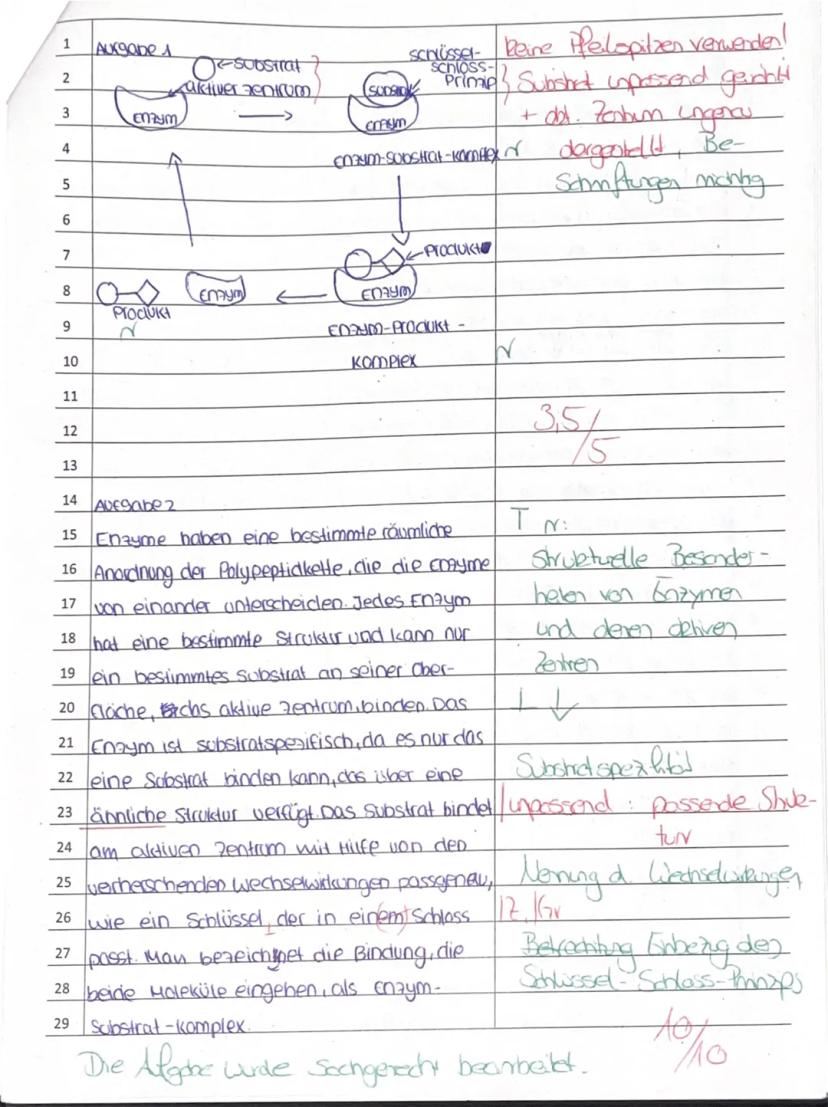 1 Aufgabe 1 Keine Pfeilspitzen verwenden!
Substrat
Schlüssel-
Schloss-
Prinzip
2 aktiver Zentrum Substrat Substrat unpassend gewählt
3 Enzym Enzym + akt. Zentrum ungenau
4 Enzym-Substrat-Komplex dargestellt, Be-
5 Schriftungen richtig
6
7 Produkt
8 Enzym Enzym
Produkt
9 Enzym-Produkt-
10 Komplex
11
12 3,5/5
13
14 Aufgabe 2
15 Enzyme haben eine bestimmte räumliche
16 Anordnung der Polypeptidkette, die die Enzyme strukturelle Besonder-
17 von einander unterscheiden. Jedes Enzym heiten von Enzymen
18 hat eine bestimmte Struktur und kann nur und deren aktiven
19 ein bestimmtes Substrat an seiner Ober- Zentren
20 fläche, das aktive Zentrum, binden. Das
21 Enzym ist substratspezifisch, da es nur das
22 eine Substrat binden kann, das über eine Substratspezifität
23 ähnliche Struktur verfügt. Das Substrat bindet unpassend: passende Struk-
tur
24 am aktiven Zentrum mit Hilfe von den
25 verherschenden Wechselwirkungen passgenau, Nennung d. Wechselwirkungen
26 wie ein Schlüssel, der in ein(em) Schloss IZ, /Gr
27 passt. Man bezeichnet die Bindung, die Einbezug des
28 beide Moleküle eingehen, als Enzym- Schlüssel-Schloss-Prinzips
29 Substrat-Komplex. 10/10
Die Aufgabe wurde sachgerecht bearbeitet.